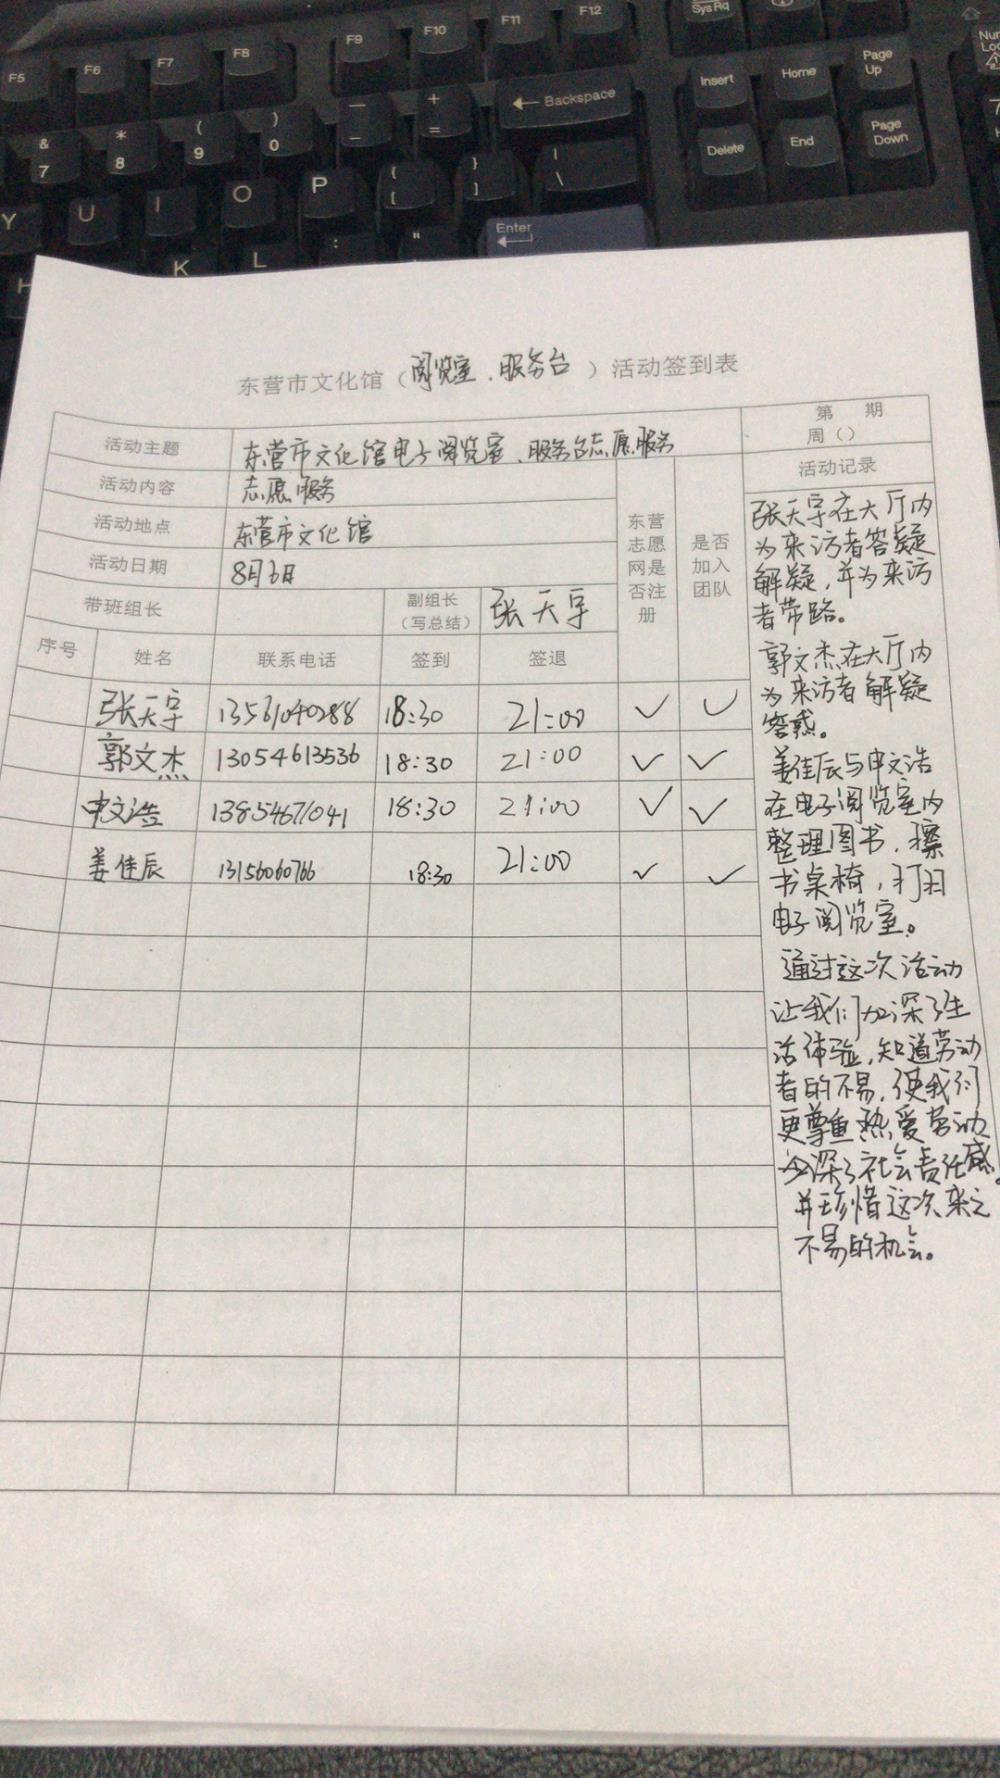 F5 F6 F7 F8 F9 F10 F11 F12 SysRq
& 7 * 8 ( 9 ) 0 — - + = ← Backspace Insert Home Page Up
Y U I O P { [ } ] | \ Delete End Page Down
K L : " Enter
东营市文化馆（阅览室、服务台）活动签到表
活动主题 东营市文化馆电子阅览室、服务台志愿服务
第 期
周（）
活动内容 志愿服务
活动地点 东营市文化馆
活动日期 8月6日
带班组长 副组长（写总结） 张天宇
东营志愿网是否注册
是否加入团队
活动记录
序号 姓名 联系电话 签到 签退
张天宇 13561040288 18:30 21:00 ✓ ✓
郭文杰 13054613536 18:30 21:00 ✓ ✓
申文浩 13854671041 18:30 21:00 ✓ ✓
姜佳辰 13156060766 18:30 21:00 ✓ ✓
张天宇在大厅内
为来访者答疑
解疑，并为来访
者带路。
郭文杰在大厅内
为来访者解疑
答惑。
姜佳辰与申文浩
在电子阅览室内
整理图书，擦
书桌椅，打扫
电子阅览室。
通过这次活动
让我们加深了生
活体验，知道劳动
者的不易，使我们
更尊重热爱劳动
深了社会责任感。
并珍惜这次来之
不易的机会。